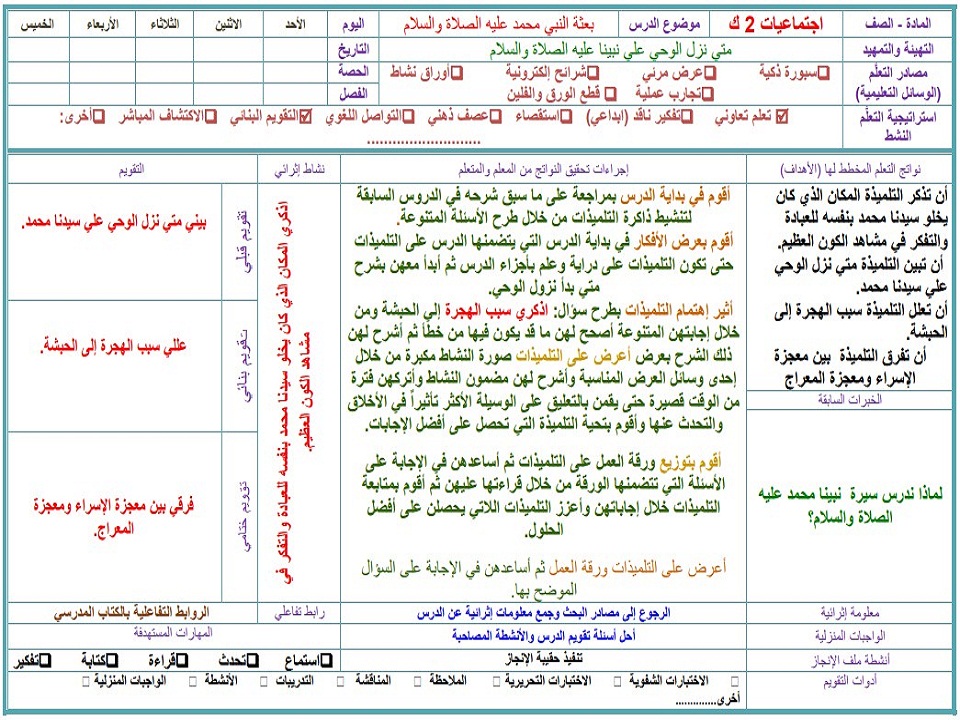 المادة - الصف
اجتماعيات 2 ك
موضوع الدرس
بعثة النبي محمد عليه الصلاة والسلام
اليوم
الأحد
الاثنين
الثلاثاء
الأربعاء
الخميس
التهيئة والتمهيد
متي نزل الوحي علي نبينا عليه الصلاة والسلام
التاريخ
مصادر التعلّم
(الوسائل التعليمية)
❑سبورة ذكية ❑عرض مرئي ❑شرائح إلكترونية ❑أوراق نشاط
❑تجارب عملية ❑ قطع الورق والفلين
الحصة
الفصل
استراتيجية التعلّم
النشط
☑ تعلم تعاوني ❑تفكير ناقد (ابداعي) ❑استقصاء ❑عصف ذهني ❑التواصل اللغوي ☑التقويم البنائي ❑الاكتشاف المباشر ❑أخرى:
...........................
نواتج التعلم المخطط لها (الأهداف)
إجراءات تحقيق النواتج من المعلم والمتعلم
نشاط إثرائي
التقويم
أن تذكر التلميذة المكان الذي كان
يخلو سيدنا محمد بنفسه للعبادة
والتفكر في مشاهد الكون العظيم.
أن تبين التلميذة متي نزل الوحي
علي سيدنا محمد.
أن تعلل التلميذة سبب الهجرة إلى
الحبشة.
أن تفرق التلميذة بين معجزة
الإسراء ومعجزة المعراج
الخبرات السابقة
لماذا ندرس سيرة نبينا محمد عليه
الصلاة والسلام؟
أقوم في بداية الدرس بمراجعة على ما سبق شرحه في الدروس السابقة
لتنشيط ذاكرة التلميذات من خلال طرح الأسئلة المتنوعة.
أقوم بعرض الأفكار في بداية الدرس التي يتضمنها الدرس على التلميذات
حتى تكون التلميذات على دراية وعلم بأجزاء الدرس ثم أبدأ معهن بشرح
متي بدأ نزول الوحي.
أثير إهتمام التلميذات بطرح سؤال: اذكري سبب الهجرة إلى الحبشة ومن
خلال إجابتهن المتنوعة أصحح لهن ما قد يكون فيها من خطأ ثم أشرح لهن
ذلك الشرح بعرض أعرض على التلميذات صورة النشاط مكبرة من خلال
إحدى وسائل العرض المناسبة وأشرح لهن مضمون النشاط وأتركهن فترة
من الوقت قصيرة حتى يقمن بالتعليق على الوسيلة الأكثر تأثيراً في الأخلاق
والتحدث عنها وأقوم بتحية التلميذة التي تحصل على أفضل الإجابات.
أقوم بتوزيع ورقة العمل على التلميذات ثم أساعدهن في الإجابة على
الأسئلة التي تتضمنها الورقة من خلال قراءتها عليهن ثم أقوم بمتابعة
التلميذات خلال إجاباتهن وأعزز التلميذات اللاتي يحصلن على أفضل
الحلول.
أعرض على التلميذات ورقة العمل ثم أساعدهن في الإجابة على السؤال
الموضح بها.
اذكري المكان الذي كان يخلو سيدنا محمد بنفسه للعبادة والتفكر في
مشاهد الكون العظيم.
تقويم قبلي
بيني متي نزل الوحي علي سيدنا محمد.
تقويم بنائي
عللي سبب الهجرة إلى الحبشة.
تقويم ختامي
فرقي بين معجزة الإسراء ومعجزة
المعراج.
معلومة إثرائية
الرجوع إلى مصادر البحث وجمع معلومات إثرائية عن الدرس
رابط تفاعلي
الروابط التفاعلية بالكتاب المدرسي
الواجبات المنزلية
أحل أسئلة تقويم الدرس والأنشطة المصاحبة
المهارات المستهدفة
أنشطة ملف الإنجاز
تنفيذ حقيبة الإنجاز
❑استماع ❑تحدث ❑قراءة ❑كتابة ❑تفكير
أدوات التقويم
□ الاختبارات الشفوية □ الاختبارات التحريرية □ الملاحظة □ المناقشة □ التدريبات □ الأنشطة □ الواجبات المنزلية □
أخرى..............